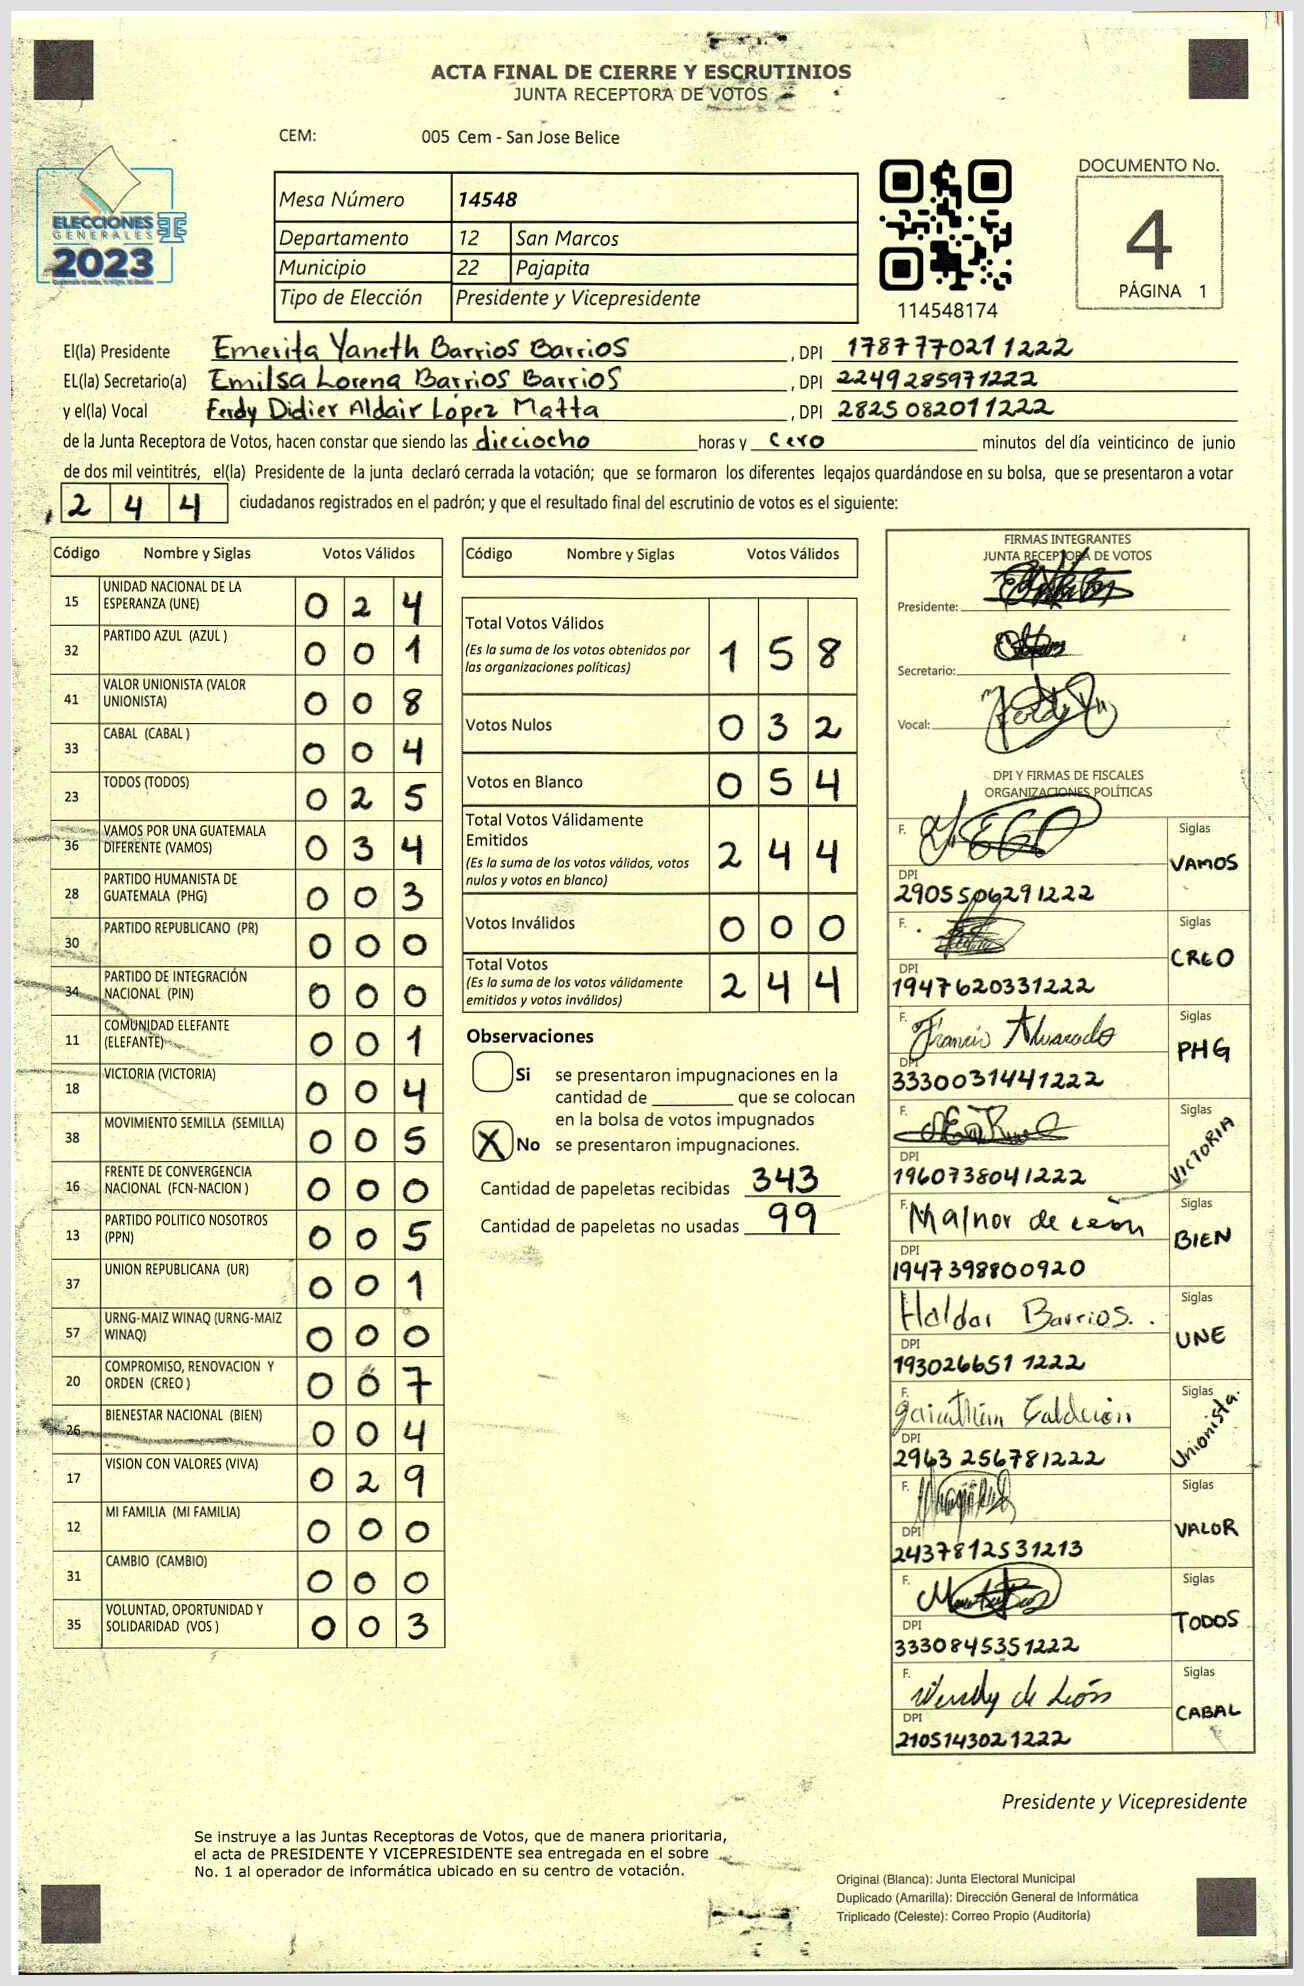 ACTA FINAL DE CIERRE Y ESCRUTINIOS
JUNTA RECEPTORA DE VOTOS
CEM: 005 Cem - San Jose Belice
ELECCIONES
GENERALES
2023
Mesa Número 14548
Departamento 12 San Marcos
Municipio 22 Pajapita
Tipo de Elección Presidente y Vicepresidente
114548174
DOCUMENTO No.
4
PÁGINA 1
El(la) Presidente Emerita Yaneth Barrios Barrios , DPI 1787770211222
EL(la) Secretario(a) Emilsa Lorena Barrios Barrios , DPI 2249285971222
y el(la) Vocal Ferdy Didier Aldair López Matta , DPI 2825082011222
de la Junta Receptora de Votos, hacen constar que siendo las dieciocho horas y cero minutos del día veinticinco de junio
de dos mil veintitrés, el(la) Presidente de la junta declaró cerrada la votación; que se formaron los diferentes legajos guardándose en su bolsa, que se presentaron a votar
244 ciudadanos registrados en el padrón; y que el resultado final del escrutinio de votos es el siguiente:
Código Nombre y Siglas Votos Válidos
15 UNIDAD NACIONAL DE LA ESPERANZA (UNE) 024
32 PARTIDO AZUL (AZUL ) 001
41 VALOR UNIONISTA (VALOR UNIONISTA) 008
33 CABAL (CABAL ) 004
23 TODOS (TODOS) 025
36 VAMOS POR UNA GUATEMALA DIFERENTE (VAMOS) 034
28 PARTIDO HUMANISTA DE GUATEMALA (PHG) 003
30 PARTIDO REPUBLICANO (PR) 000
34 PARTIDO DE INTEGRACIÓN NACIONAL (PIN) 000
11 COMUNIDAD ELEFANTE (ELEFANTE) 001
18 VICTORIA (VICTORIA) 004
38 MOVIMIENTO SEMILLA (SEMILLA) 005
16 FRENTE DE CONVERGENCIA NACIONAL (FCN-NACION ) 000
13 PARTIDO POLITICO NOSOTROS (PPN) 005
37 UNION REPUBLICANA (UR) 001
57 URNG-MAIZ WINAQ (URNG-MAIZ WINAQ) 000
20 COMPROMISO, RENOVACION Y ORDEN (CREO ) 007
26 BIENESTAR NACIONAL (BIEN) 004
17 VISION CON VALORES (VIVA) 029
12 MI FAMILIA (MI FAMILIA) 000
31 CAMBIO (CAMBIO) 000
35 VOLUNTAD, OPORTUNIDAD Y SOLIDARIDAD (VOS ) 003
Código Nombre y Siglas Votos Válidos
Total Votos Válidos 158
(Es la suma de los votos obtenidos por
las organizaciones políticas)
Votos Nulos 032
Votos en Blanco 054
Total Votos Válidamente
Emitidos 244
(Es la suma de los votos válidos, votos
nulos y votos en blanco)
Votos Inválidos 000
Total Votos 244
(Es la suma de los votos válidamente
emitidos y votos inválidos)
Observaciones
Si se presentaron impugnaciones en la
cantidad de ________ que se colocan
en la bolsa de votos impugnados
X No se presentaron impugnaciones.
Cantidad de papeletas recibidas 343
Cantidad de papeletas no usadas 99
FIRMAS INTEGRANTES
JUNTA RECEPTORA DE VOTOS
Presidente:
Secretario:
Vocal:
DPI Y FIRMAS DE FISCALES
ORGANIZACIONES POLÍTICAS
F. Siglas VAMOS
DPI 2905506291222
F. Siglas CREO
DPI 1947620331222
F. Francis Alvarado Siglas PHG
DPI 3330031441222
F. Siglas VICTORIA
DPI 1960738041222
F. Maynor de León Siglas BIEN
DPI 1947398800920
Haldar Barrios. Siglas UNE
DPI 1930266511222
F. Calderón Siglas Unionista.
DPI 2963256781222
F. Siglas VALOR
DPI 2437812531213
F. Siglas TODOS
DPI 3330845351222
F. Wendy de León Siglas CABAL
DPI 2105143021222
Presidente y Vicepresidente
Se instruye a las Juntas Receptoras de Votos, que de manera prioritaria,
el acta de PRESIDENTE Y VICEPRESIDENTE sea entregada en el sobre
No. 1 al operador de informática ubicado en su centro de votación.
Original (Blanca): Junta Electoral Municipal
Duplicado (Amarilla): Dirección General de Informática
Triplicado (Celeste): Correo Propio (Auditoría)